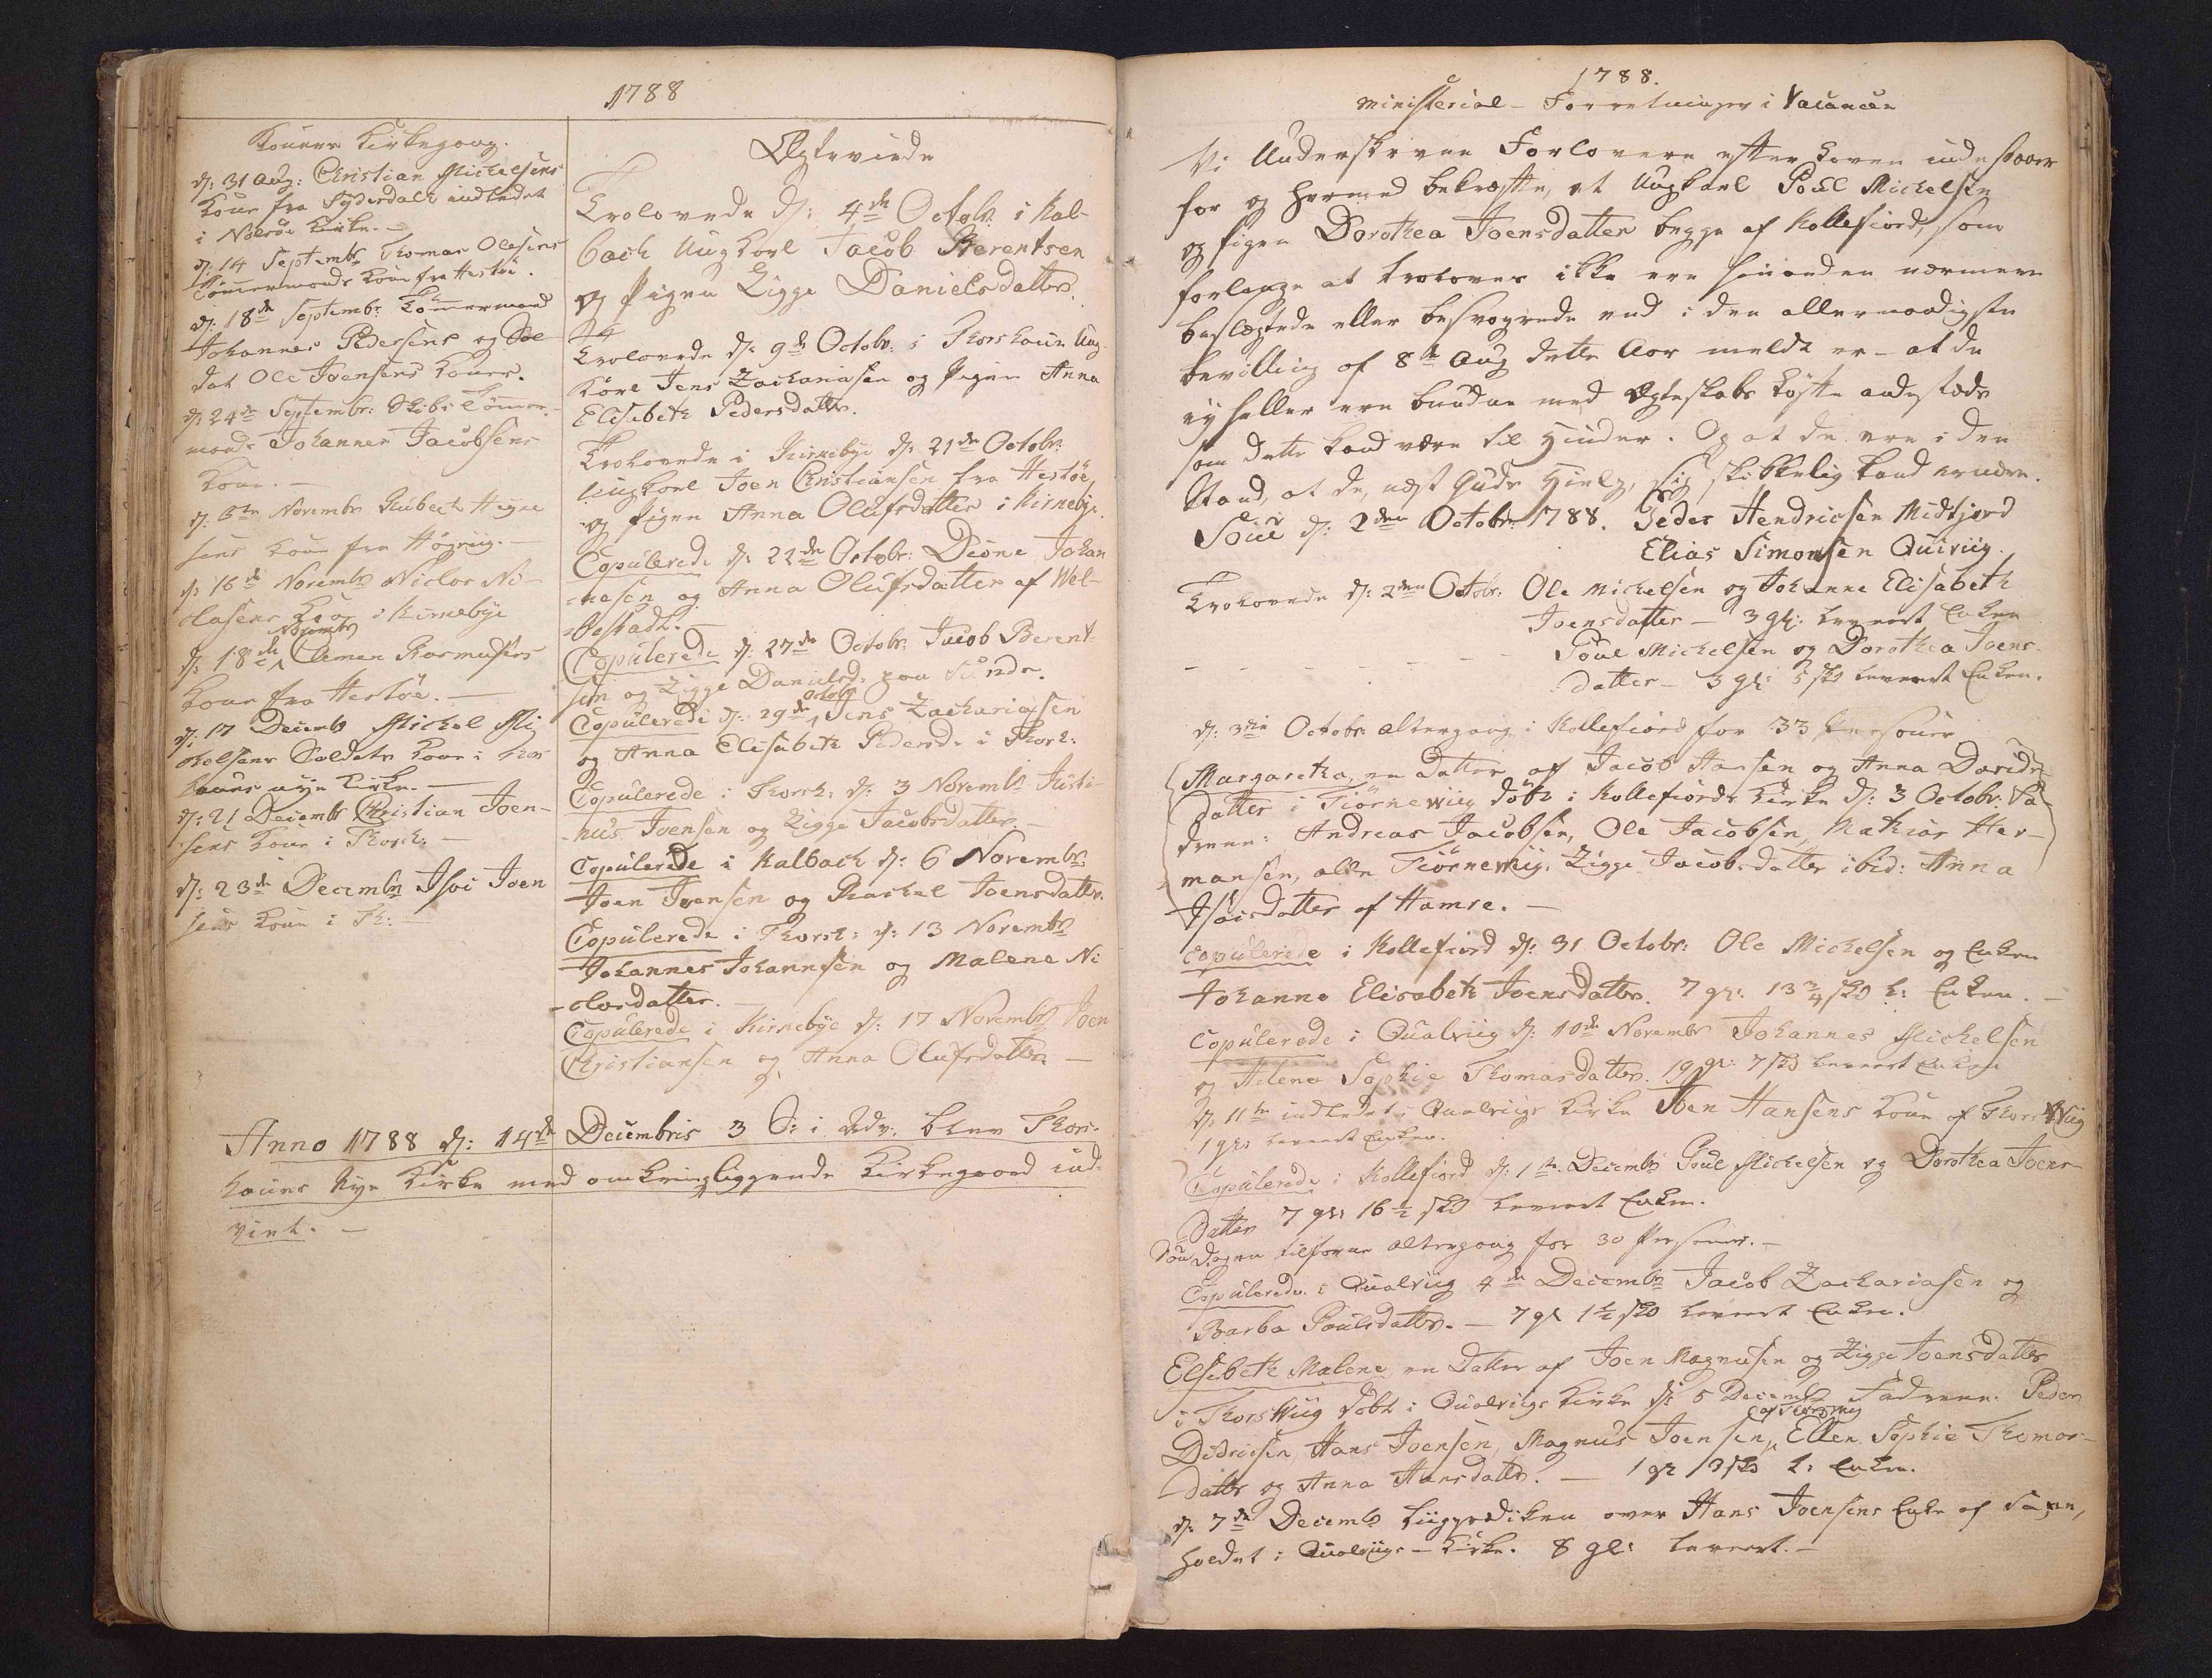 1788
Koners Kirkegang.
d: 31 Aug: Christian Michelsens
Kone fra Syderdahl indledet
i Nolsöe Kirke. -
d: 14 Septembr Thomas Olesens
Tömmermands Kone fra Hestöe.
d: 18de Septembr: Tömmermand
Johannes Pedersens og Sol-
dat Ole Joensens Koner.
d: 24de Septembr: Skibs Tömmer-
mands Johannes Jacobsens
Kone. -
d: 6te Novembr Rubech Heyne
sens Kone fra Högviig. -
d: 16de Novembr Niclas Ni-
clasens Kone i Kirnebye
Novembr
d: 18de Clemen Rasmusens
Kone fra Hestöe. -
d: 17 Decembr Michel Mi
chelsens Soldats Kone i Thors
hauns nye Kirke. -
d: 21 Decembr Christian Joen-
sens Kone i Thorsh: -
d: 23de Decembr Isai Joen
sens Kone i Th: -
Ægteviede
Trolovede d: 4de Octobr i Kal-
bach Ungkarl Jacob Berentsen
og Pigen Zigge Danielsdatter.
Trolovede d: 9de Octobr: i Thorshaun Ung-
karl Jens Zachariasen og Pigen Anna
Elisabeth Pedersdatter.
Trolovede i Kirkebye d: 21de Octobr:
Ungkarl Joen Christiansen fra Hestöe,
og Pigen Anna Olufsdatter i Kirnebye.
Copulerede d: 22de Octobr: Dione Johan
nesen og Anna Olufsdatter af Wel-
bestadt. -
Copulerede d: 27de Octobr: Jacob Berent-
sen og Zigge Danielsd: paa Sunde.
Octobr
Copulerede d: 29de Jens Zachariasen
og Anna Elisabeth Pedersd: i Thorsh:
Copulerede i Thorsh: d: 3 Novembr Justi-
nus Joensen og Zigge Jacobsdatter -
Copulerede i Kalbach d: 6 Novembr
Joen Joensen og Rachel Joensdatter.
Copulerede i Thorsh: d: 13 Novembr
Johannes Johannesen og Malene Ni
clasdatter. -
Copulerede i Kirkebye d: 17 Novembr Joen
Christiansen og Anna Olufsdatter -
Anno 1788 d: 14de Decembris 3 S: i Adv. blev Thors-
hauns Nye Kirke med omkringliggende Kirkegaard ind-
viet. -
1788.
Ministerial - Forretninger i Vacancen
Vi Underskrevne Forlovere efter Loven indestaaer
for og hermed bekræfte, at Ungkarl Poul Michelsen
og Pigen Dorothea Joensdatter begge af Kollefiord, som
forlange at trolovis ikke ere hinanden nærmere
beslægtede eller besvogrede end i den allernaadigste
bevilling af 8de Aug dette Aar meldt er - at de
ey heller ere bundne med Ægteskabs Löfte andestæds
som dette kand være til Hinder. Og at de ere i den
Stand, at de, næst Guds Hielp, sig skikkelig kand ernære.
Soul d: 2den Octobr: 1788. Peder Hendricsen Midtfjord
Elias Simonsen Quiviig.
Trolovede d: 2den Octobr: Ole Michelsen og Johanne Elisabeth
Joensdatter - 3 gl: leveret Enken
Poul Michelsen og Dorothea Joens-
datter - 3 gl: 5 sk leveret Enken.
d: 3die Octobr: Altergang i Kollefiord for 33 Personer
Margaretha, en Datter af Jacob Hansen og Anna Davids-
datter i Tiörneviig döbt i Kollefiords Kirke d: 3 Octobr: Fa-
derne: Andreas Jacobsen, Ole Jacobsen, Mathias Her-
mansen, alle Tiörneviig, Zigge Jacobsdatter ibid: Anna
Isaisdatter af Hamre. -
Copulerede i Kollefiord d: 31 Octobr: Ole Michelsen og Enken
Johanne Elisabeth Joensdatter. 7 gl: 13 3/4 sk l: Enken. -
Copulerede i Qualviig d: 10de Novembr Johannes Michelsen
og Helene Sophie Thomasdatter. 19 gl: 7 sk leveret Enken
d: 11te indledet i Qualviigs Kirke Joen Hansens Kone af Thorsviig
1 gl: leveret Enken.
Copulerede i Kollefiord d: 1te Decembr Poul Michelsen og Dorothea Joens-
datter 7 gl: 16 1/2 sk leveret Enken.
Söndagen tilforne Altergang for 30 Personer. -
Copulerede i Qualviig 4de Decembr Jacob Zachariasen og
Barba Poulsdatter. - 7 gl 1 1/2 sk leveret Enken.
Elsebeth Malene en Datter af Joen Magnusen og Zigge Joensdatter
i Thorsviig döbt i Qualviigs Kirke d: 5 Decembr Fadderne. Peder
Didricsen, Hans Joensen, Magnus Joensen, Ellen Sophie Thomas-
datter og Anna Hansdatter. - 1 gl 13 sk l: Enken.
d: 7de Decembr Liigprædiken over Hans Joensens Enke af
holdet i Qualviigs - Kirke. 8 gl: leveret. -